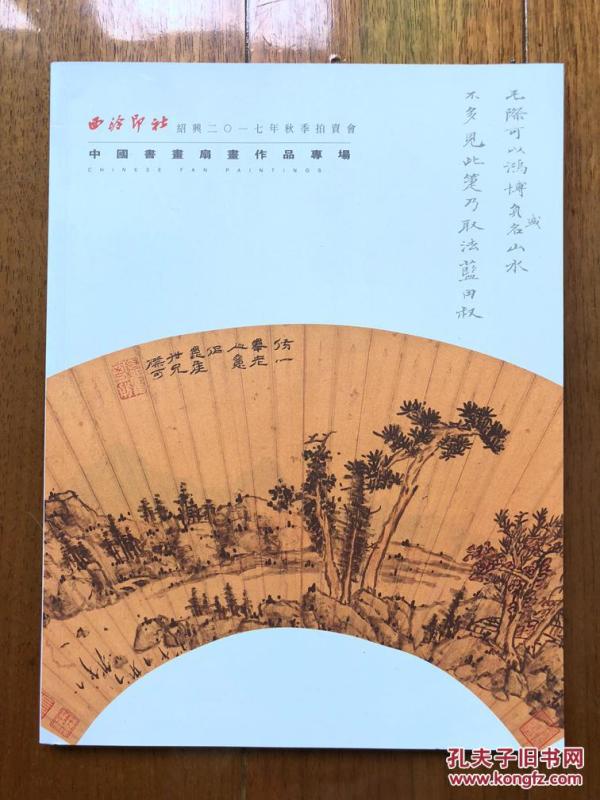 西泠印社 紹興二〇一七年秋季拍賣會
中國書畫扇畫作品專場
CHINESE FAN PAINTINGS
毛際可以鴻博負盛名山水
不多見此筆乃取法藍田叔
仿一
峯老
人意
似
際可
孔夫子旧书网
www.kongfz.com